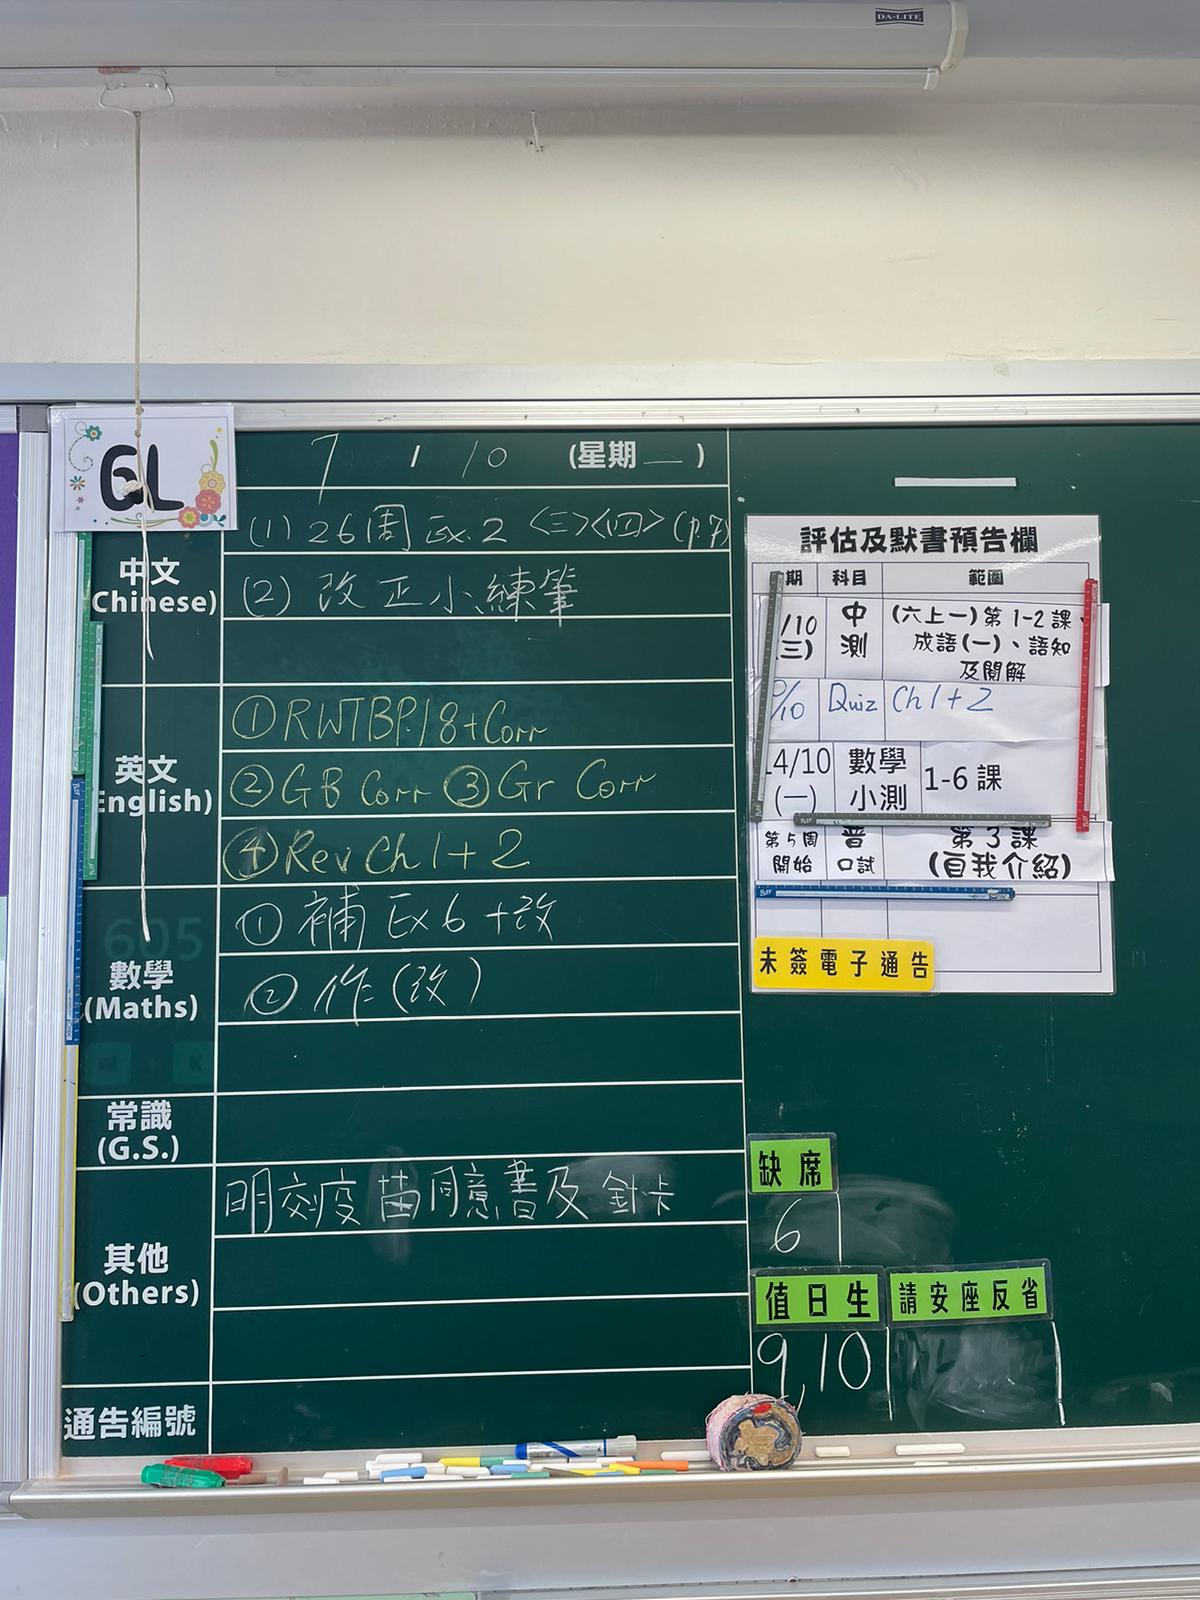 DA-LITE
6L
7 / 10 (星期一)
中文
(Chinese)
(1) 26周 Ex. 2 <三><四> (p.7)
(2) 改正小練筆
英文
English)
①RWTBP.18+Corr
②GB Corr ③Gr Corr
④Rev Ch 1+2
605
數學
(Maths)
① 補 Ex 6 +改
② 作 (改)
常識
(G.S.)
其他
(Others)
明交疫苗同意書及針卡
通告編號
評估及默書預告欄
期 科目 範圍
/10
(三)
中
測
(六上一)第1-2課、
成語(一)、語知
及閱解
/10 Quiz Ch 1+2
14/10
(一)
數學
小測
1-6 課
第5周
開始
普
口試
第3課
(自我介紹)
未簽電子通告
缺席
6
值日生
9, 10
請安座反省